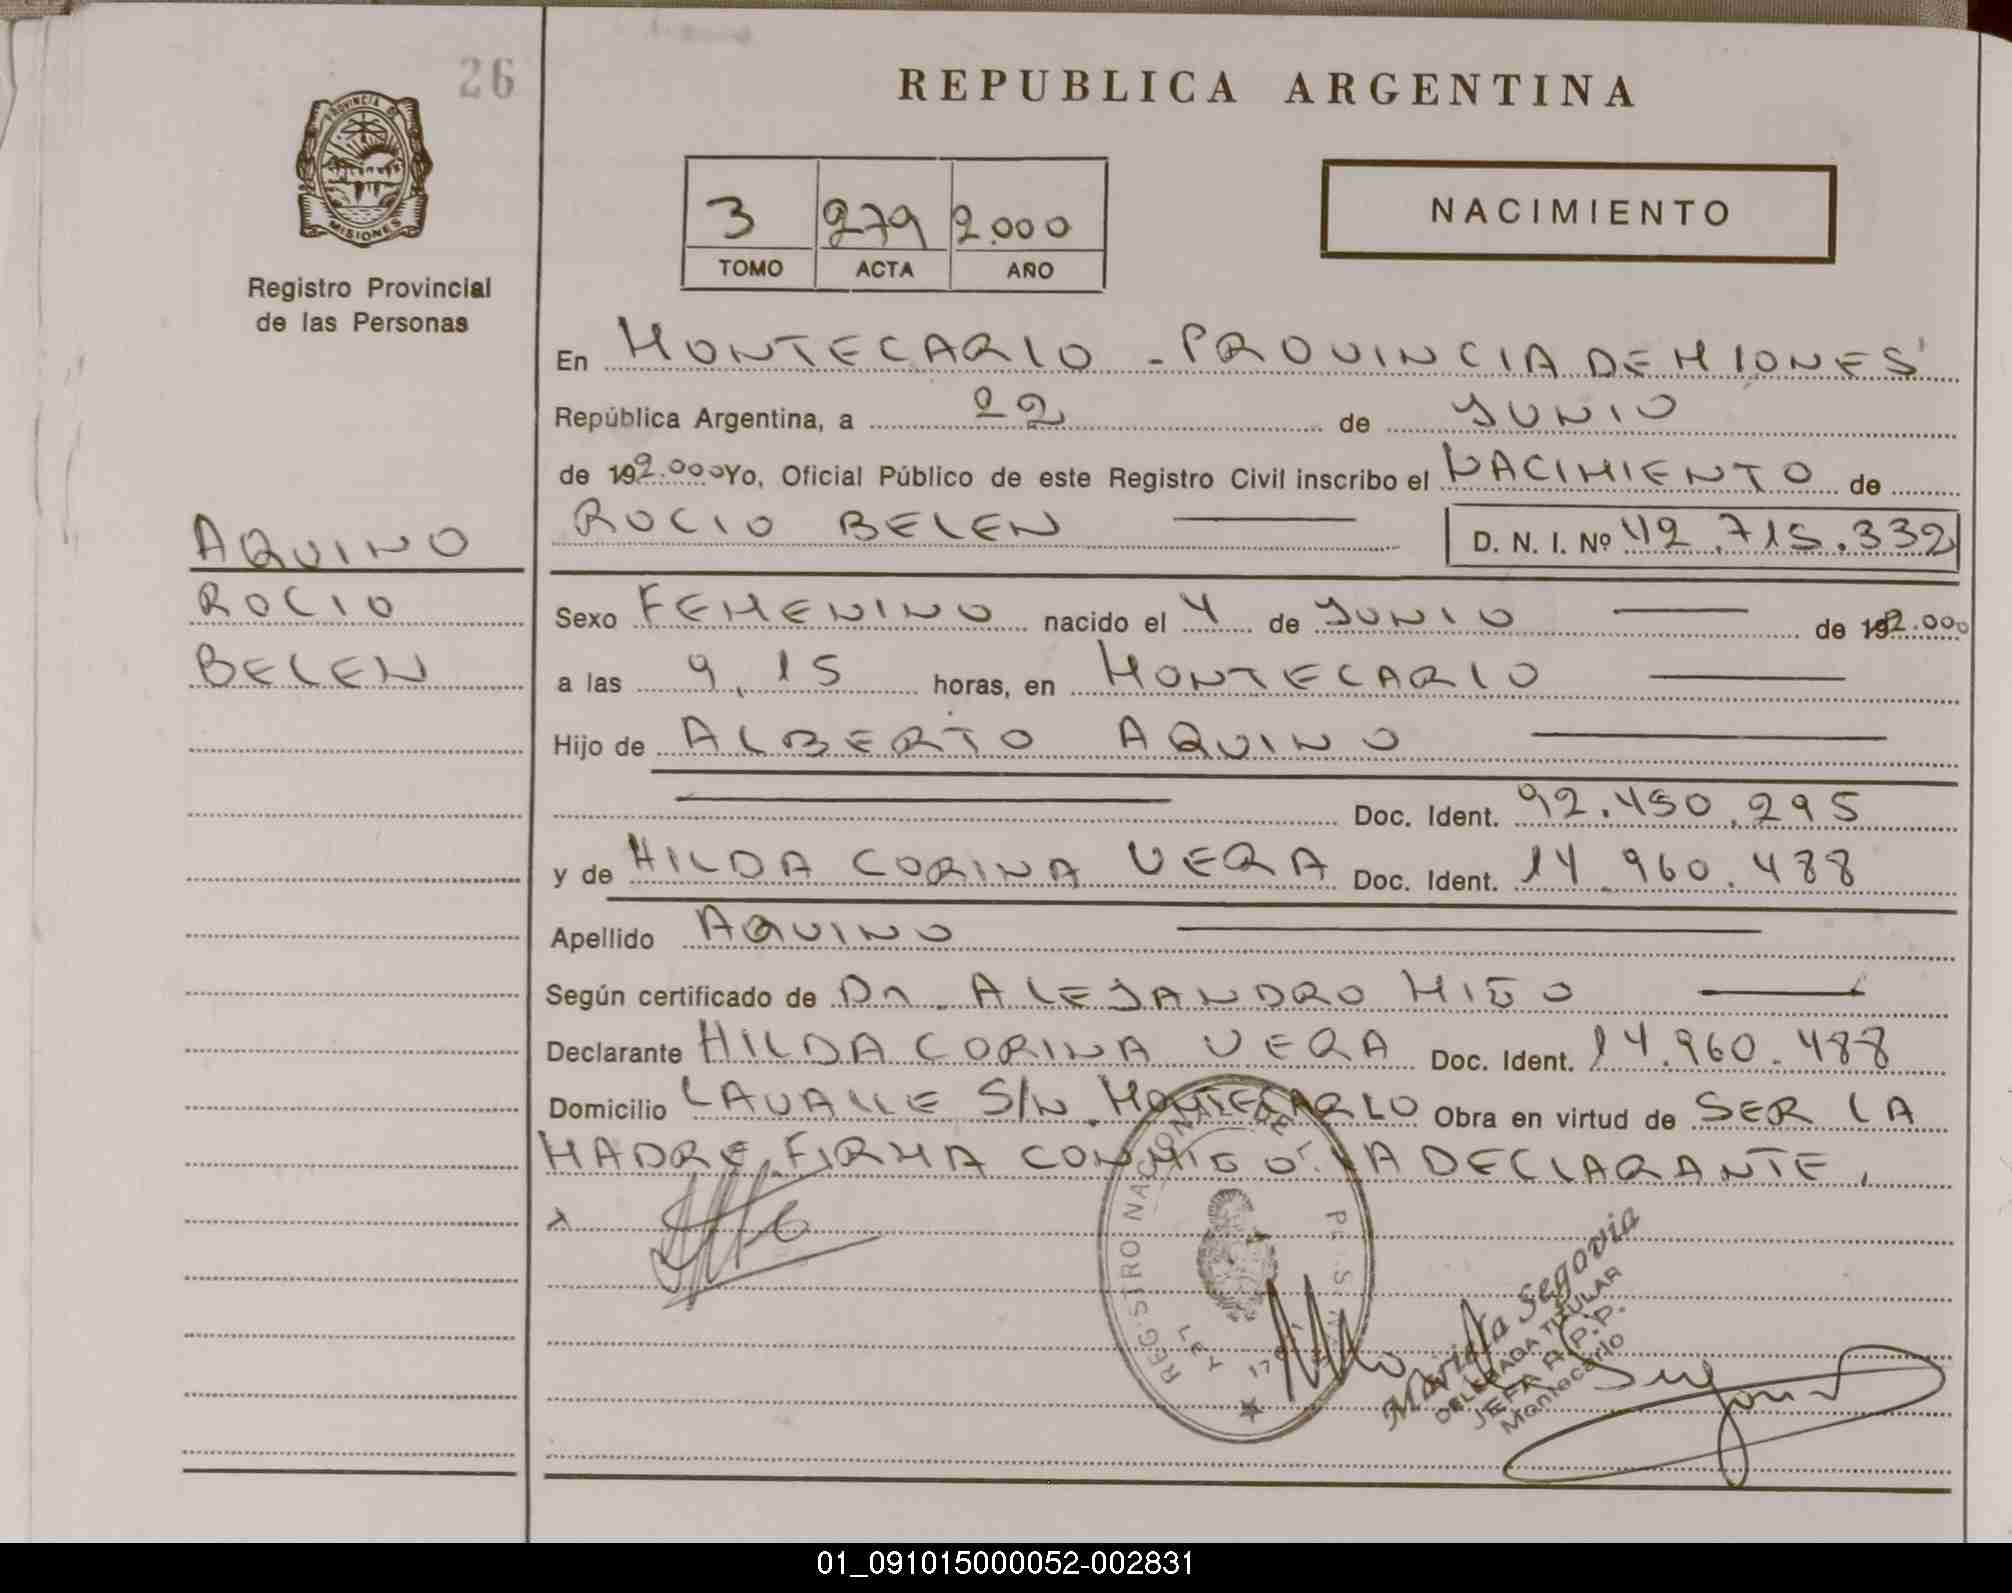 26
REPUBLICA ARGENTINA
PROVINCIA DE
MISIONES
Registro Provincial
de las Personas
3 279 2.000
TOMO ACTA AÑO
NACIMIENTO
En MONTECARLO - PROVINCIA DE MIONES
República Argentina, a 22 de JUNIO
de 192.000 Yo, Oficial Público de este Registro Civil inscribo el NACIMIENTO de
ROCIO BELEN D. N. I. Nº 42.715.332
AQUINO
ROCIO
BELEN
Sexo FEMENINO nacido el 4 de JUNIO de 192.000
a las 9,15 horas, en MONTECARLO
Hijo de ALBERTO AQUINO
Doc. Ident. 92.450.295
y de HILDA CORINA VERA Doc. Ident. 14.960.488
Apellido AQUINO
Según certificado de Dr. ALEJANDRO
Declarante HILDA CORINA VERA Doc. Ident. 14.960.488
Domicilio LAVALLE S/N. MONTECARLO Obra en virtud de SER LA
MADRE. FIRMA CONMIGO LA DECLARANTE.
REGISTRO NACIONAL DE
Marieta Segovia
DELEGADA TITULAR
JEFA R.P.P.
Montecarlo
01_091015000052-002831